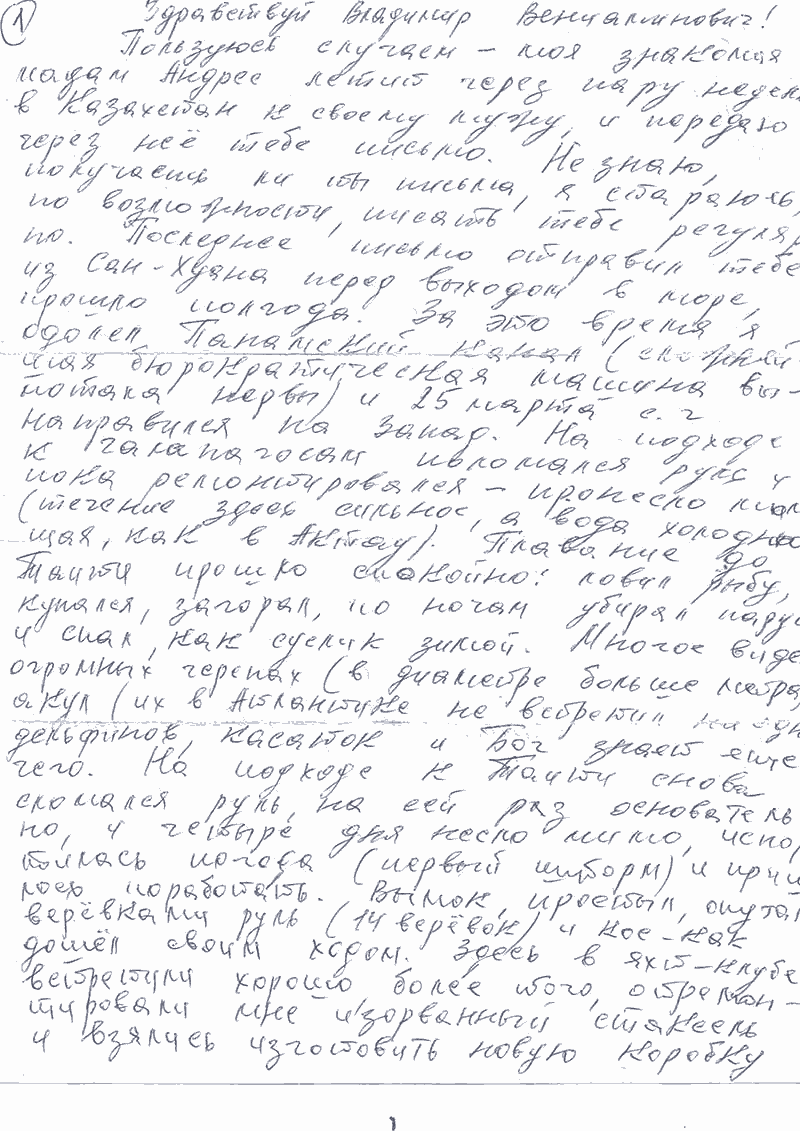 1
Здравствуй Владимир Вениаминович!
Пользуюсь случаем – моя знакомая
мадам Андрес летит через пару недель
в Казахстан к своему мужу, и передаю
через неё тебе письмо. Не знаю,
получаешь ли ты письма, я стараюсь,
по возможности, писать тебе регуляр
но. Последнее письмо отправил тебе
из Сан-Хуана перед выходом в море,
прошло полгода. За это время я
одолел Панамский канал (
мая бюрократическая машина вы-
мотала нервы) и 25 марта с.г
направился на запад. На подходе
к Галапагосам поломался руль и
пока ремонтировался – пронесло мимо
(течение здесь сильное, а вода холодню
щая, как в Актау). Плавание до
Таити прошло спокойно: ловил рыбу,
купался, загорал, по ночам убирал парус
и спал, как суслик зимой. Многое виде
огромных черепах (в диаметре больше метра
акул (их в Атлантике не встретил ни одн
дельфинов, касаток и Бог знает еще
чего. На подходе к Таити снова
сломался руль, на сей раз основатель
но, и четыре дня несло мимо, испор
тилась погода (первый шторм) и приш
лось поработать. Вымок, простыл, опутал
верёвками руль (14 верёвок) и кое-как
дошёл своим ходом. Здесь в яхт-клубе
встретили хорошо более того, отремон-
тировали мне изорванный стаксель
и взялись изготовить новую коробку
1